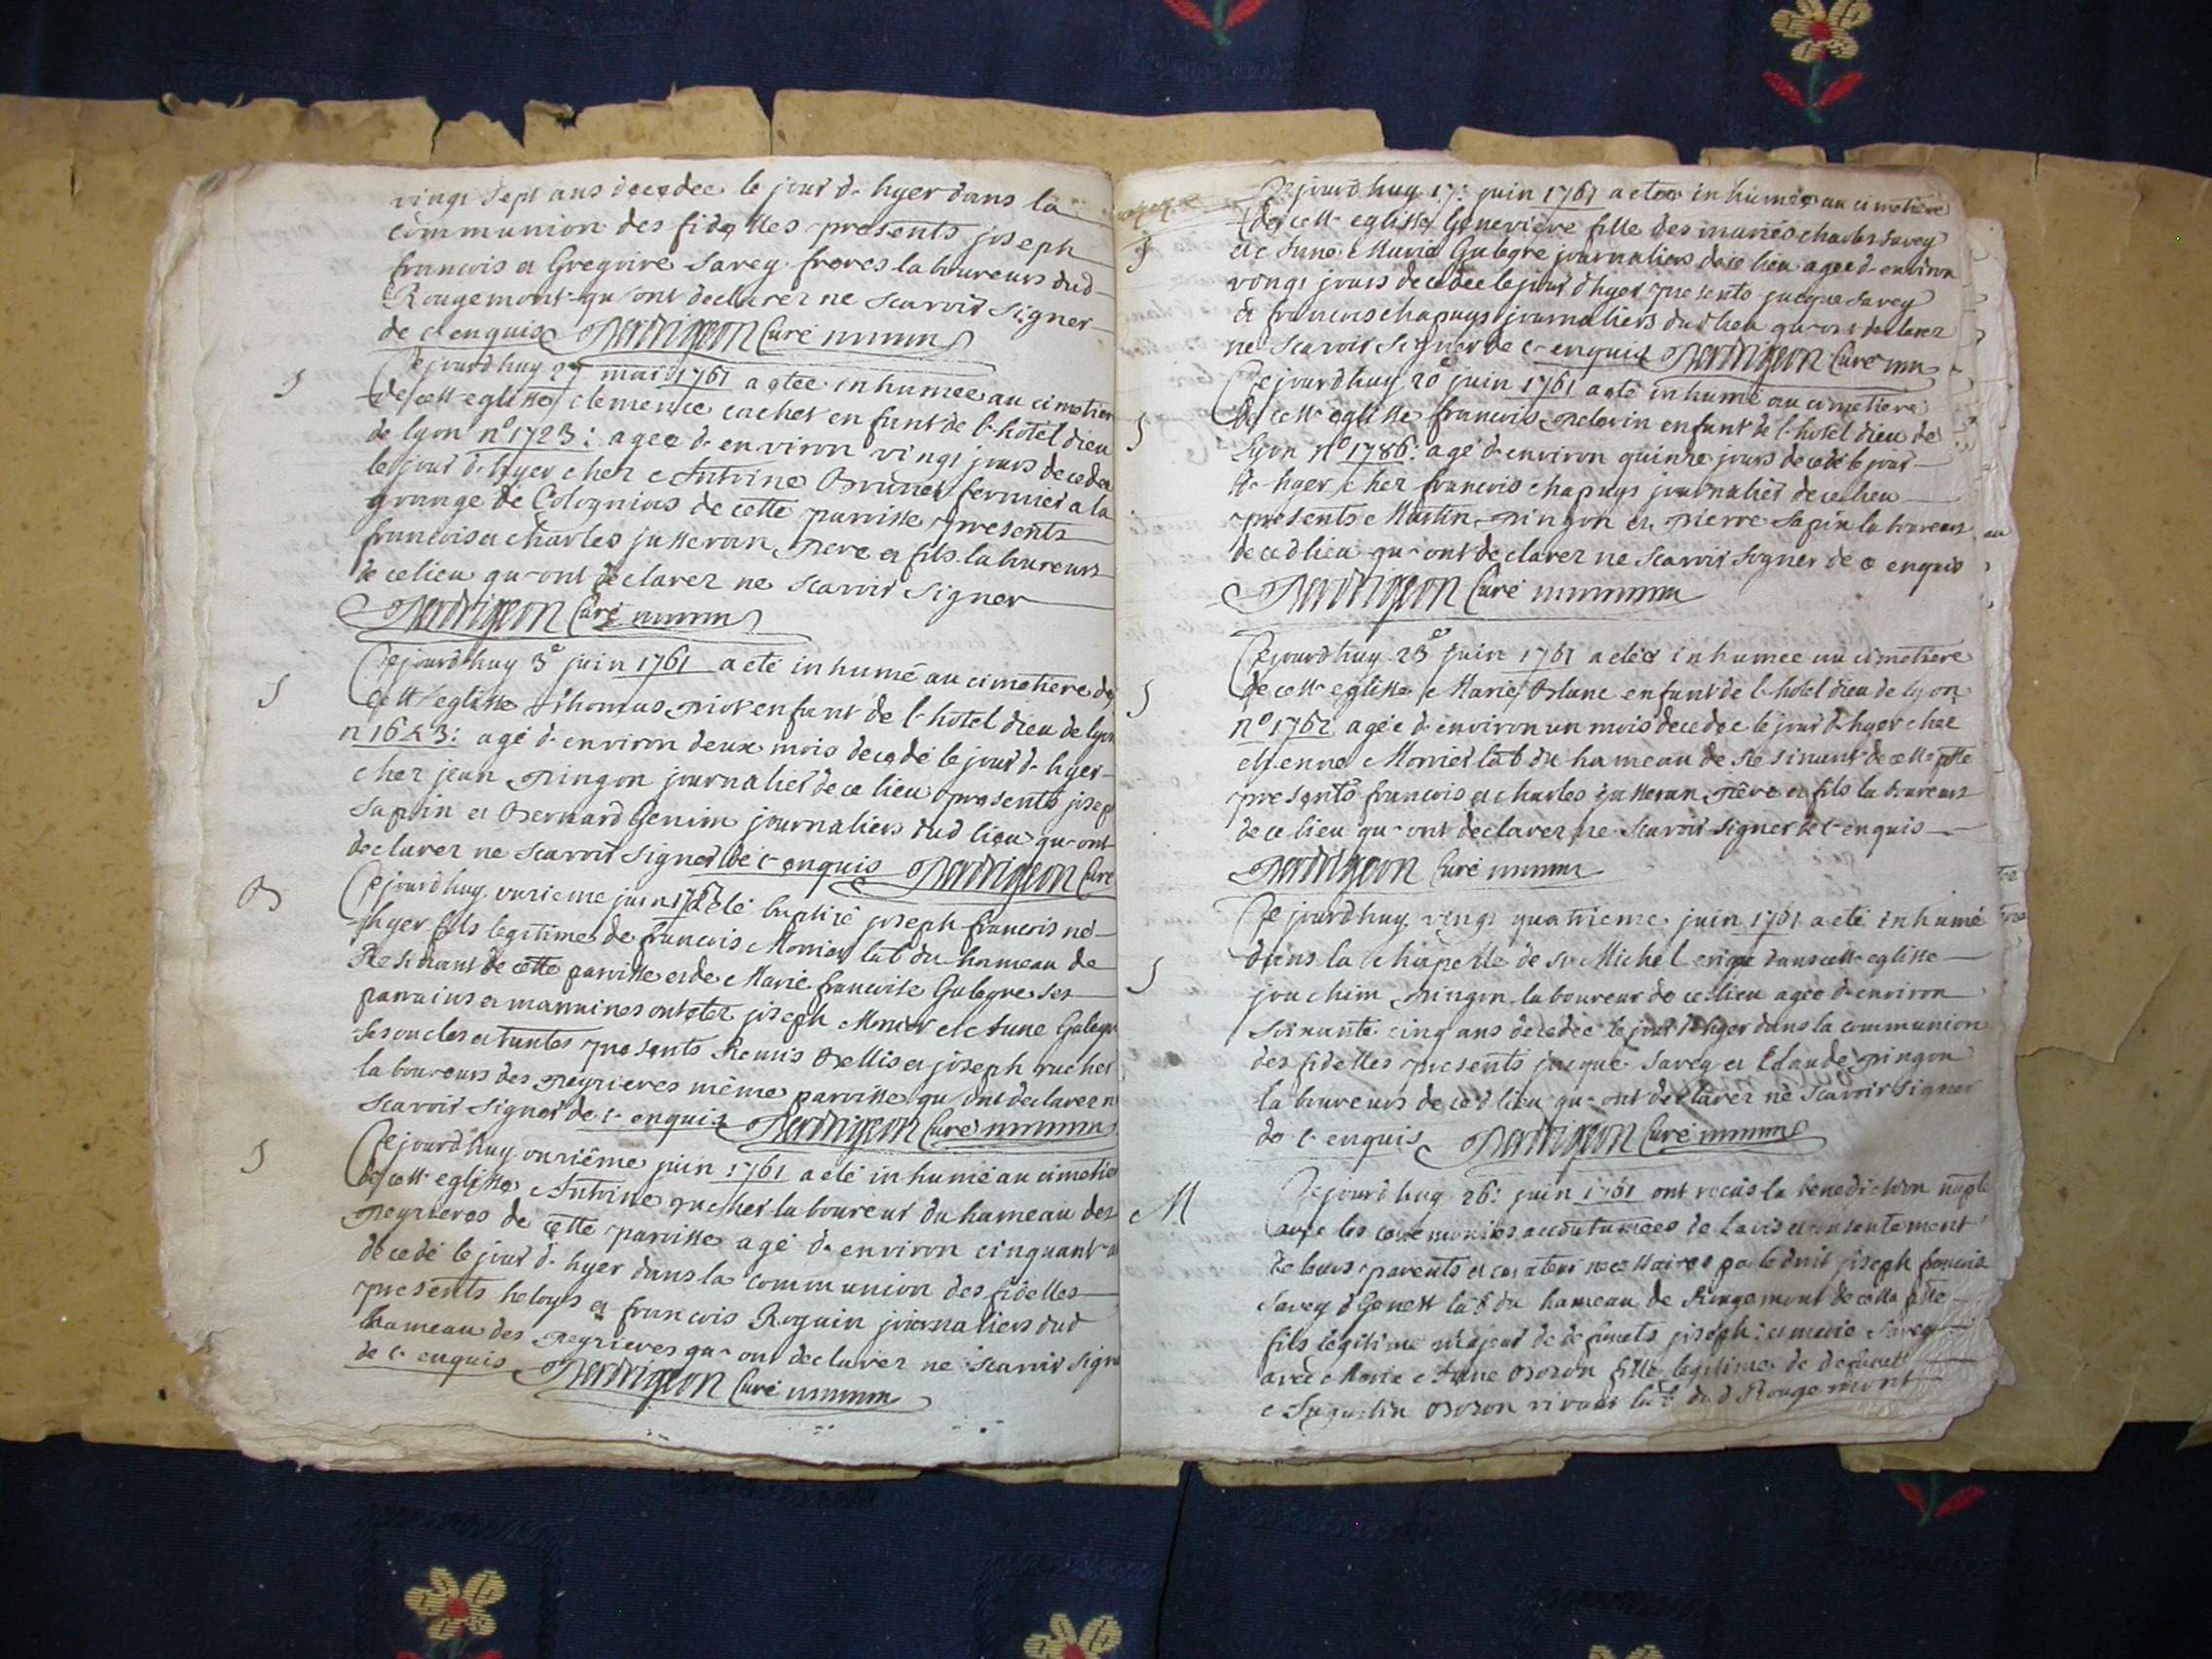 vingt sept ans decedée le jour d'hyer dans la
communion des fidelles presents joseph
francois et Gregoire Savey freres laboureurs dud
Rougemont qui ont declarer ne scavoir signer
de ce enquis Perdrigeon Curé
Cejourdhuy 27 mai 1761 a etée inhumée au cimetier
S
de cette eglisse clemence cachet enfant de l'hotel dieu
de lyon n° 1723: agée d'environ vingt jours decedée
le jour d'hyer chez Antoine Brunet fermier a la
grange de Colognias de cette paroisse presents
francois et charles jusseran Pere et fils laboureurs
de ce lieu qui ont declarer ne scavoir signer
Perdrigeon Curé
Cejourdhuy 3e juin 1761 a eté inhumé au cimetiere de
S
cette eglisse Thomas enfant de l'hotel dieu de lyon
n agé d'environ deux mois decedé le jour d'hyer
chez jean Pingon journalier de ce lieu presents joseph
Sapin et Bernard Genin journaliers dud lieu qui ont
declarer ne scavoir signer de ce enquis Perdrigeon Curé
B
Cejourdhuy onzieme juin 1761 a eté baptizé joseph francois né
hyer fils legitime de francois Monier lab du hameau de
Resinant de cette paroisse et de Marie francoise Galegre ses
parrains et marraines ont eter joseph Monier et Anne Galegre
ses oncles et tantes presents Remis Bellis et joseph rucher
laboureurs des Peyrieres même paroisse qui ont declarer ne
scavoir signer de ce enquis Perdrigeon Curé
S
Cejourdhuy onzième juin 1761 a eté inhumé au cimetier
de cette eglisse Antoine rucher laboureur du hameau des
Peyrieres de cette paroisse agé d'environ cinquant
decedé le jour d'hyer dans la communion des fidelles
presents et francois Roguin journaliers dud
hameau des Peyrieres qui ont declarer ne scavoir signe
de ce enquis Perdrigeon Curé
Cejourdhuy 17: juin 1761 a etée inhumée au cimetiere
de cette eglisse Genevieve fille des mariés charles Savey
S
et Anne Marie Galegre journaliers de ce lieu agée d'environ
vingt jours decedée le jour d'hyer presents jacque Savey
et francois chapuys journaliers dud lieu qui ont declarer
ne scavoir signer de ce enquis Perdrigeon Curé
Cejourdhuy 20e juin 1761 a eté inhumé au cimetiere
S
de cette eglisse francois Pelerin enfant de l'hotel dieu de
Lyon n° 1786: agé d'environ quinze jours decedé le jour
d'hyer chez francois chapuys journalier de ce lieu
presents Martin Pingon et Pierre Sapin laboureurs
de ced lieu qui ont declarer ne scavoir signer de ce enquis
Perdrigeon Curé
Cejourdhuy 23e juin 1761 a etée inhumée au cimetiere
S
de cette eglisse Marie Blanc enfant de l'hotel dieu de lyon
n° 1762 agée d'environ un mois decedée le jour d'hyer chez
etienne Monier lab du hameau de Resinant de cette psse
presents francois et charles jusseran Père et fils laboureurs
de ce lieu qui ont declarer ne scavoir signer de ce enquis
Perdrigeon Curé
Cejourdhuy vingt quatrieme juin 1761 a eté inhumé
S
dans la chapelle de st Michel erigé dans cette eglisse
joachim Pingon laboureur de ce lieu agée d'environ
soixante cinq ans decedée le jour d'hyer dans la communion
des fidelles presents jacque Savey et Claude Pingon
laboureurs de ced lieu qui ont declarer ne scavoir signer
de ce enquis Perdrigeon Curé
M
Cejourdhuy 26: juin 1761 ont recus la benediction nuptle
avec les ceremonies accoutumées de l'avis et consentement
de leurs parents et curateur necessaires par le droit joseph francois
Savey d'Genest lab du hameau de Rougemont de cette psse
fils legitime majeur de defunets joseph: et marie Savey
avec Marie Anne Bozon fille legitime de defunet
Augustin Bozon vivant lab dud Rougemont